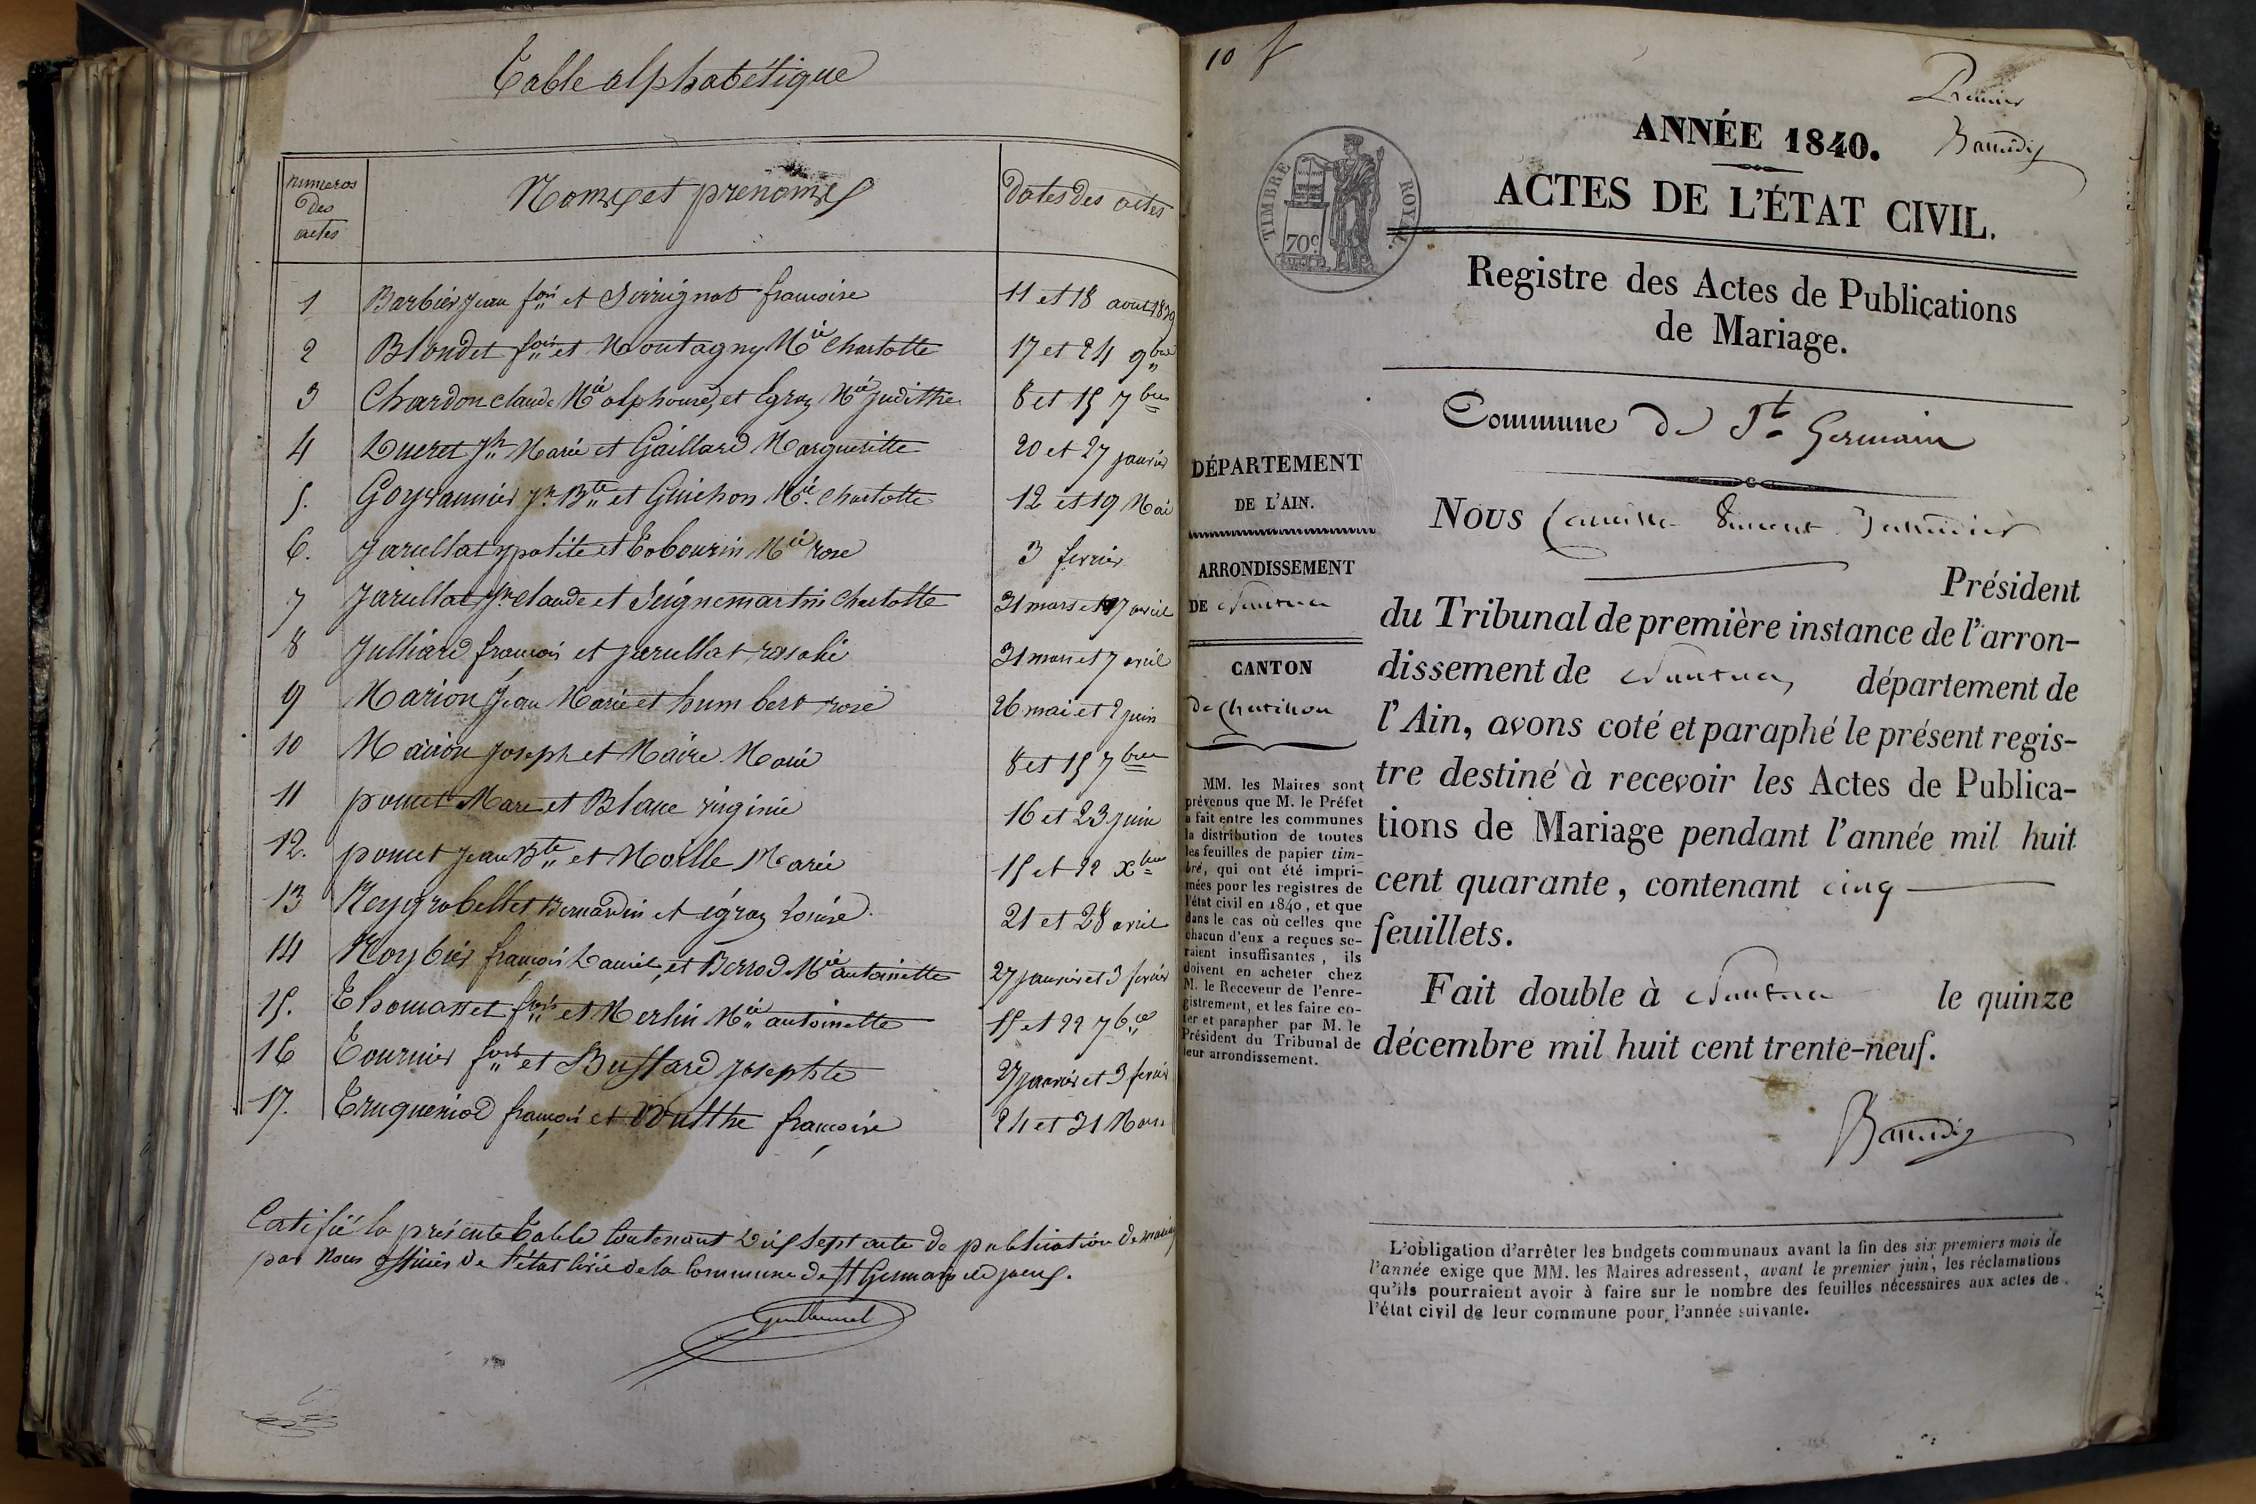 Table alphabétique
numeros
des
actes
Noms et prenoms
Dates des actes
1 Barbier Jean fois et francoise 11 et 18 aout 1839
2 Blondet fois et Montagny Mie Charlotte 17 et 24 9bre
3 Chardon claude Mie alphonse et Egraz Mie judithe 8 et 15 7bre
4 Ducret jh Marie et Gaillard Margueritte 20 et 27 janvier
5. Goyvannier jn Bte et Guichon Mie Charlotte 12 et 19 Mai
6. Jacullat ypolite et Tobourin Mie rose 3 fevrier
7 Jacullat jh claude et Seignemartin Charlotte 31 mars et 7 avril
8 Julliard françois et Jacullat rosalie 31 mars et 7 avril
9 Marion Jean Marie et humbert rose 26 mai et 2 juin
10 Marion joseph et Maire Marie 8 et 15 7bre
11 poncet Marc et Blanc virginie 16 et 23 juin
12. poncet jean Bte et Moille Marie 15 et 22 Xbre
13 Reygrobellet Bernardin et égraz Louise 21 et 28 avril
14 Roybier françois et Berrod Mie antoinette 27 janvier et 3 fevrier
15. Thomasset fois et Merlin Mie antoinette 15 et 22 7bre
16 Tournier fois et Bussard josephte 27 janvier et 3 fevrier
17. Truqueriod françois et francoise 24 et 31 Mars
Certifié la présente Table Contenant Dix sept acte de publication de mariage
par Nous officier de l'état Civil de la Commune de St Germain de joux.
10 f
Premier
Baudin
ANNÉE 1840.
ACTES DE L'ÉTAT CIVIL.
TIMBRE ROYAL.
70c
Registre des Actes de Publications
de Mariage.
Commune de St Germain
DÉPARTEMENT
DE L'AIN.
ARRONDISSEMENT
DE Nantua
CANTON
de Chatillon
MM. les Maires sont
prévenus que M. le Préfet
a fait entre les communes
la distribution de toutes
les feuilles de papier tim-
bré, qui ont été impri-
mées pour les registres de
l'état civil en 1840, et que
dans le cas où celles que
chacun d'eux a reçues se-
raient insuffisantes, ils
doivent en acheter chez
M. le Receveur de l'enre-
gistrement, et les faire co-
ter et parapher par M. le
Président du Tribunal de
leur arrondissement.
NOUS Camille Vincent
Président
du Tribunal de première instance de l'arron-
dissement de Nantua, département de
l'Ain, avons coté et paraphé le présent regis-
tre destiné à recevoir les Actes de Publica-
tions de Mariage pendant l'année mil huit
cent quarante, contenant cinq
feuillets.
Fait double à Nantua le quinze
décembre mil huit cent trente-neuf.
L'obligation d'arrêter les budgets communaux avant la fin des six premiers mois de
l'année exige que MM. les Maires adressent, avant le premier juin, les réclamations
qu'ils pourraient avoir à faire sur le nombre des feuilles nécessaires aux actes de
l'état civil de leur commune pour l'année suivante.